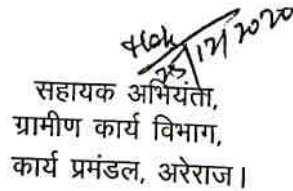 25/12/2020
सहायक अभियंता,
ग्रामीण कार्य विभाग,
कार्य प्रमंडल, अरेराज।